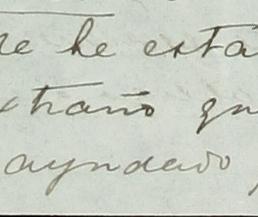 he esta
xtraño qu
ayudado